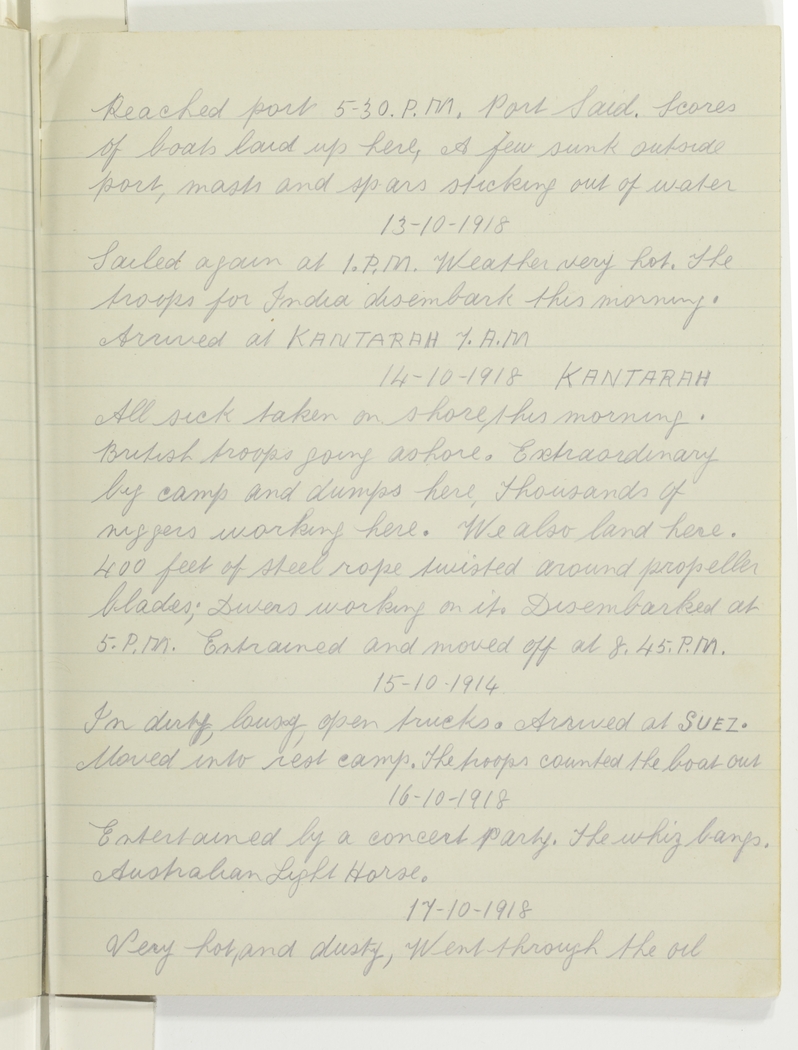 Reached port 5-30. P.M. Port Said. Scores
of boats laid up here, A few sunk outside
port, masts and spars sticking out of water
13-10-1918
Sailed again at 1. P.M. Weather very hot. The
troops for India disembark this morning.
Arrived at KANTARAH 7. A.M
14-10-1918 KANTARAH
All sick taken on shore, this morning.
British troops going ashore. Extraordinary
big camp and dumps here, Thousands of
niggers working here. We also land here.
400 feet of steel rope twisted around propeller
blades; Divers working on it. Disembarked at
5. P.M. Entrained and moved off at 8. 45. P.M.
15-10-1914
In dirty, lousy, open trucks. Arrived at SUEZ.
Moved into rest camp. The troops counted the boat out
16-10-1918
Entertained by a concert Party. The whiz bangs.
Australian Light Horse.
17-10-1918
Very hot, and dusty, Went through the oil